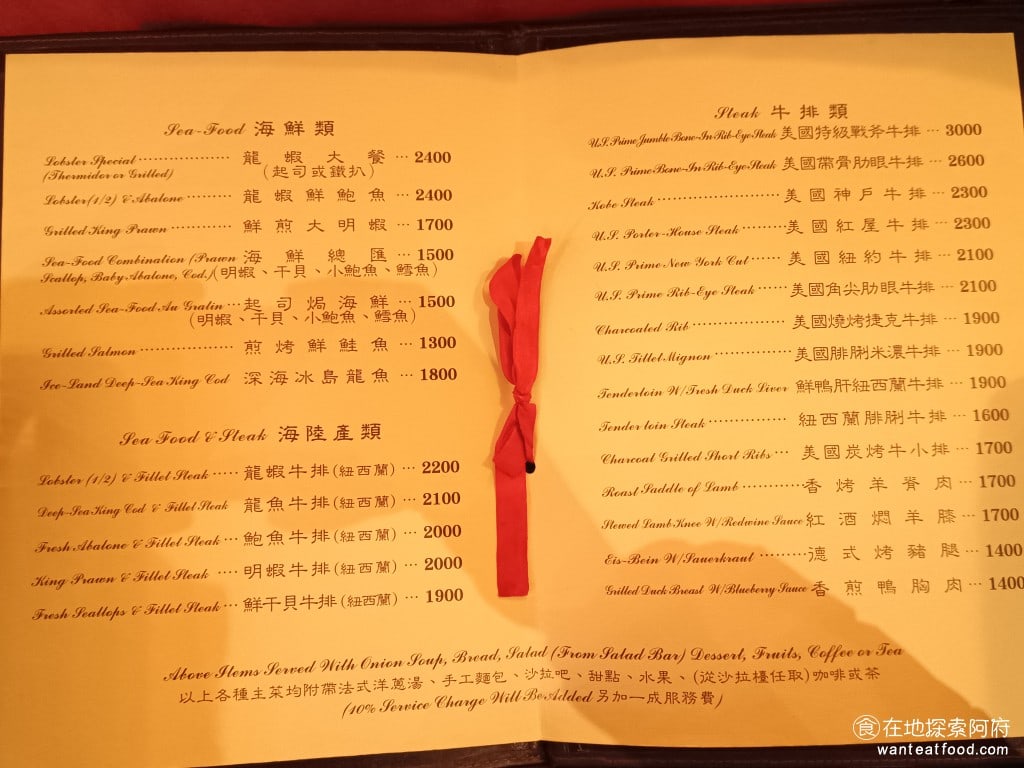 Sea-Food 海鮮類
Lobster Special ·················· 龍蝦大餐 ··· 2400
(Thermidor or Grilled) (起司或鐵扒)
Lobster (1/2) & Abalone ········· 龍蝦鮮鮑魚 ··· 2400
Grilled King Prawn ············ 鮮煎大明蝦 ··· 1700
Sea-Food Combination (Prawn 海鮮總匯 ··· 1500
Scallop, Baby Abalone, Cod.) (明蝦、干貝、小鮑魚、鱈魚)
Assorted Sea-Food Au Gratin ··· 起司焗海鮮 ··· 1500
(明蝦、干貝、小鮑魚、鱈魚)
Grilled Salmon ·················· 煎烤鮮鮭魚 ··· 1300
Ice-Land Deep-Sea King Cod 深海冰島龍魚 ··· 1800
Sea Food & Steak 海陸產類
Lobster (1/2) & Fillet Steak ····· 龍蝦牛排(紐西蘭) ··· 2200
Deep-Sea King Cod & Fillet Steak 龍魚牛排(紐西蘭) ··· 2100
Fresh Abalone & Fillet Steak ··· 鮑魚牛排(紐西蘭) ··· 2000
King Prawn & Fillet Steak ···· 明蝦牛排(紐西蘭) ··· 2000
Fresh Scallops & Fillet Steak ··· 鮮干貝牛排(紐西蘭) ··· 1900
Steak 牛排類
U.S. Prime Jumble Bone-In Rib-Eye Steak 美國特級戰斧牛排 ··· 3000
U.S. Prime Bone-In Rib-Eye Steak 美國帶骨肋眼牛排 ··· 2600
Kobe Steak ····················· 美國神戶牛排 ··· 2300
U.S. Porter-House Steak ········· 美國紅屋牛排 ··· 2300
U.S. Prime New York Cut ······ 美國紐約牛排 ··· 2100
U.S. Prime Rib-Eye Steak ······ 美國角尖肋眼牛排 ··· 2100
Charcoaled Rib ·················· 美國燒烤捷克牛排 ··· 1900
U.S. Fillet Mignon ··············· 美國腓脷米濃牛排 ··· 1900
Tenderloin W/Fresh Duck Liver 鮮鴨肝紐西蘭牛排 ··· 1900
Tender loin Steak ··············· 紐西蘭腓脷牛排 ··· 1600
Charcoal Grilled Short Ribs ··· 美國炭烤牛小排 ··· 1700
Roast Saddle of Lamb ············ 香烤羊脊肉 ··· 1700
Stewed Lamb Knee W/Redwine Sauce 紅酒燜羊膝 ··· 1700
Eis-Bein W/Sauerkraut ········· 德式烤豬腿 ··· 1400
Grilled Duck Breast W/Blueberry Sauce 香煎鴨胸肉 ··· 1400
Above Items Served With Onion Soup, Bread, Salad (From Salad Bar) Dessert, Fruits, Coffee or Tea
以上各種主菜均附帶法式洋蔥湯、手工麵包、沙拉吧、甜點、水果、(從沙拉檯任取)咖啡或茶
(10% Service Charge Will Be Added 另加一成服務費)
食在地探索阿府
wanteatfood.com